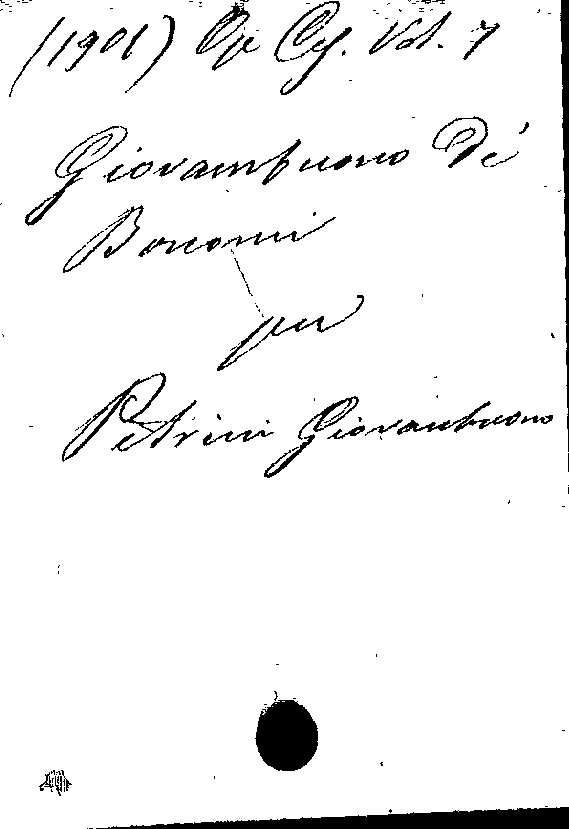 (1901) Op Cg. Vol. 7
Giovambuono Dé
Bonconi
per
Petrini Giovambuono